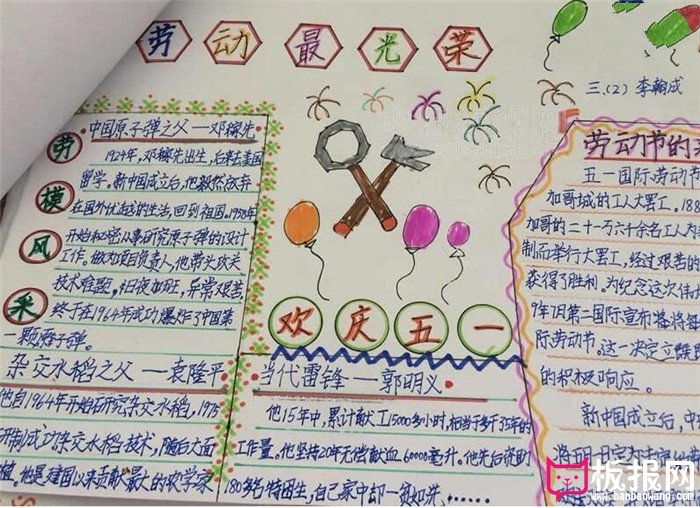 劳动最光荣
三.(2) 李翰成
劳模风采
中国原子弹之父一邓稼先
1924年,邓稼先出生,后来去美国
留学。新中国成立后,他毅然放弃
在国外优越的生活,回到祖国。1958年
开始秘密从事研究原子弹的设计
工作。做为项目负责人,他带头攻关
技术难题,日夜加班,异常艰苦
终于在1964年成功爆炸了中国第
一颗原子弹。
杂交水稻之父 — 袁隆平
他自1964年开始研究杂交水稻,1975
研制成功杂交水稻技术,随后大面
植。他是建国以来贡献最大的农学家
欢庆五一
当代雷锋一郭明义
他15年中,累计献工15000多小时,相当于多干35年的
工作量。他坚持20年无偿献血60000毫升。他先后资助
180多名特困生,自己家中却一贫如洗,……
劳动节的
五一国际劳动节
加哥城的工人大罢工,188
加哥的二十一万六千余名工人为
制而举行大罢工,经过艰苦的
获得了胜利。为纪念这次伟大
9年7月第二国际宣布将每
际劳动节。这一决定立
的积极响应。
新中国成立后,中
将5月1日定为
板报网
www.banbaowang.com